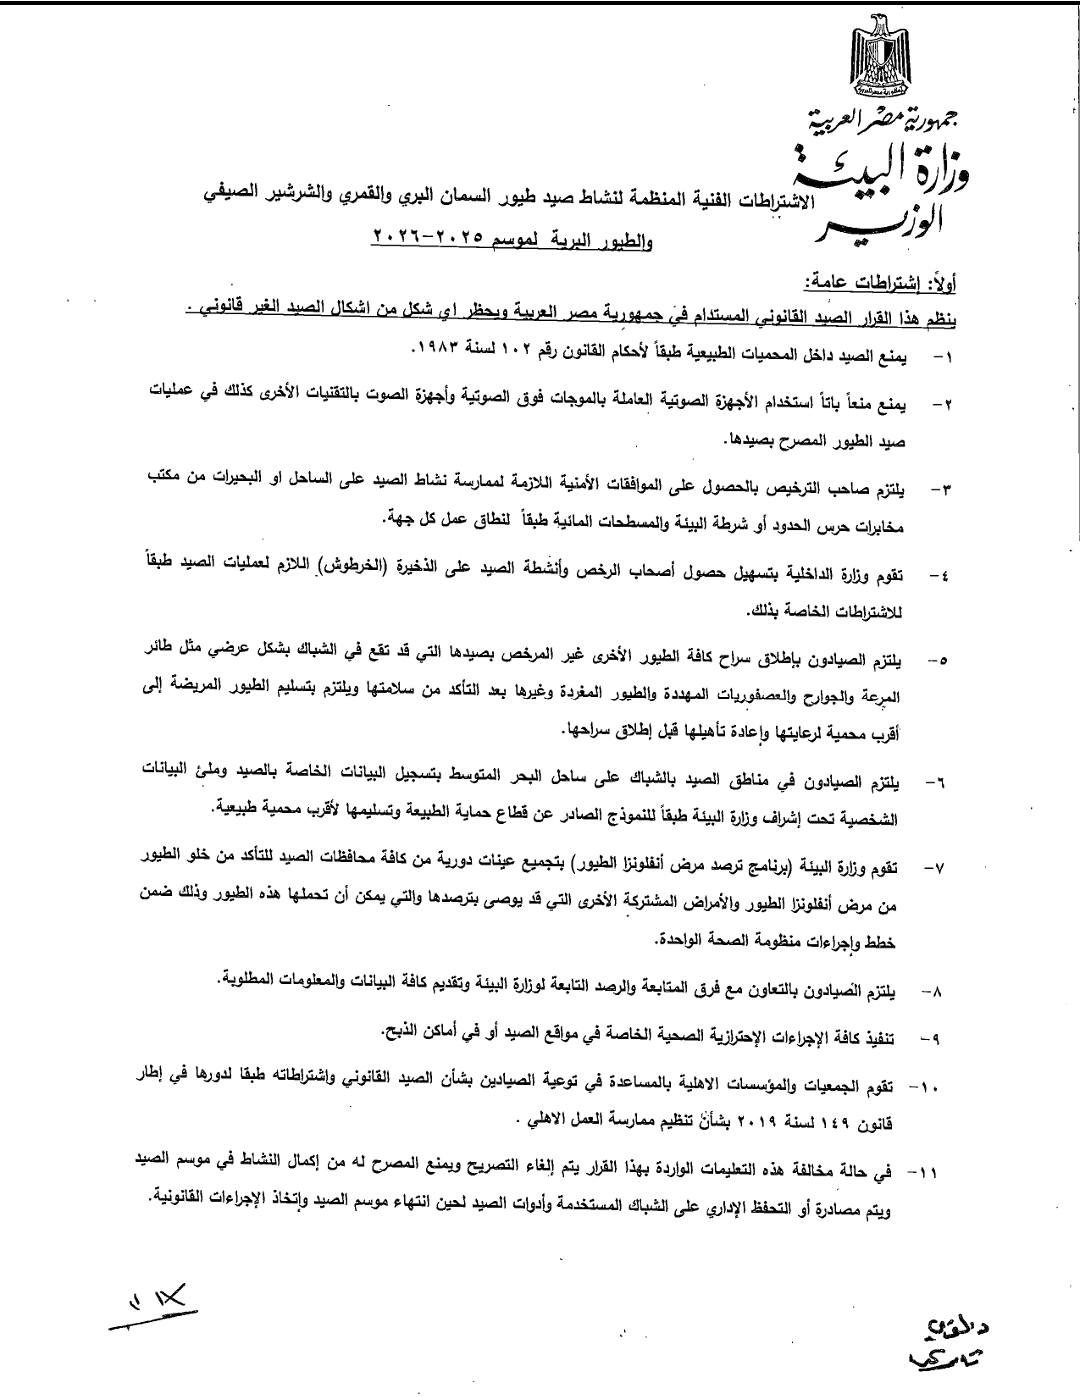 جمهورية مصر العربية
وزارة البيئة
الوزير
الاشتراطات الفنية المنظمة لنشاط صيد طيور السمان البري والقمري والشرشير الصيفي
والطيور البرية لموسم ٢٠٢٥-٢٠٢٦
أولاً: إشتراطات عامة:
ينظم هذا القرار الصيد القانوني المستدام في جمهورية مصر العربية ويحظر اي شكل من اشكال الصيد الغير قانوني .
١- يمنع الصيد داخل المحميات الطبيعية طبقاً لأحكام القانون رقم ١٠٢ لسنة ١٩٨٣.
٢- يمنع منعاً باتاً استخدام الأجهزة الصوتية العاملة بالموجات فوق الصوتية وأجهزة الصوت بالتقنيات الأخرى كذلك في عمليات
صيد الطيور المصرح بصيدها.
٣- يلتزم صاحب الترخيص بالحصول على الموافقات الأمنية اللازمة لممارسة نشاط الصيد على الساحل او البحيرات من مكتب
مخابرات حرس الحدود أو شرطة البيئة والمسطحات المائية طبقاً لنطاق عمل كل جهة.
٤- تقوم وزارة الداخلية بتسهيل حصول أصحاب الرخص وأنشطة الصيد على الذخيرة (الخرطوش) اللازم لعمليات الصيد طبقاً
للاشتراطات الخاصة بذلك.
٥- يلتزم الصيادون بإطلاق سراح كافة الطيور الأخرى غير المرخص بصيدها التي قد تقع في الشباك بشكل عرضي مثل طائر
المرعة والجوارح والعصفوريات المهددة والطيور المغردة وغيرها بعد التأكد من سلامتها ويلتزم بتسليم الطيور المريضة إلى
أقرب محمية لرعايتها وإعادة تأهيلها قبل إطلاق سراحها.
٦- يلتزم الصيادون في مناطق الصيد بالشباك على ساحل البحر المتوسط بتسجيل البيانات الخاصة بالصيد وملئ البيانات
الشخصية تحت إشراف وزارة البيئة طبقاً للنموذج الصادر عن قطاع حماية الطبيعة وتسليمها لأقرب محمية طبيعية.
٧- تقوم وزارة البيئة (برنامج ترصد مرض أنفلونزا الطيور) بتجميع عينات دورية من كافة محافظات الصيد للتأكد من خلو الطيور
من مرض أنفلونزا الطيور والأمراض المشتركة الأخرى التي قد يوصى بترصدها والتي يمكن أن تحملها هذه الطيور وذلك ضمن
خطط وإجراءات منظومة الصحة الواحدة.
٨- يلتزم الصيادون بالتعاون مع فرق المتابعة والرصد التابعة لوزارة البيئة وتقديم كافة البيانات والمعلومات المطلوبة.
٩- تنفيذ كافة الإجراءات الإحترازية الصحية الخاصة في مواقع الصيد أو في أماكن الذبح.
١٠- تقوم الجمعيات والمؤسسات الاهلية بالمساعدة في توعية الصيادين بشأن الصيد القانوني واشتراطاته طبقا لدورها في إطار
قانون ١٤٩ لسنة ٢٠١٩ بشأن تنظيم ممارسة العمل الاهلي .
١١- في حالة مخالفة هذه التعليمات الواردة بهذا القرار يتم إلغاء التصريح ويمنع المصرح له من إكمال النشاط في موسم الصيد
ويتم مصادرة أو التحفظ الإداري على الشباك المستخدمة وأدوات الصيد لحين انتهاء موسم الصيد وإتخاذ الإجراءات القانونية.